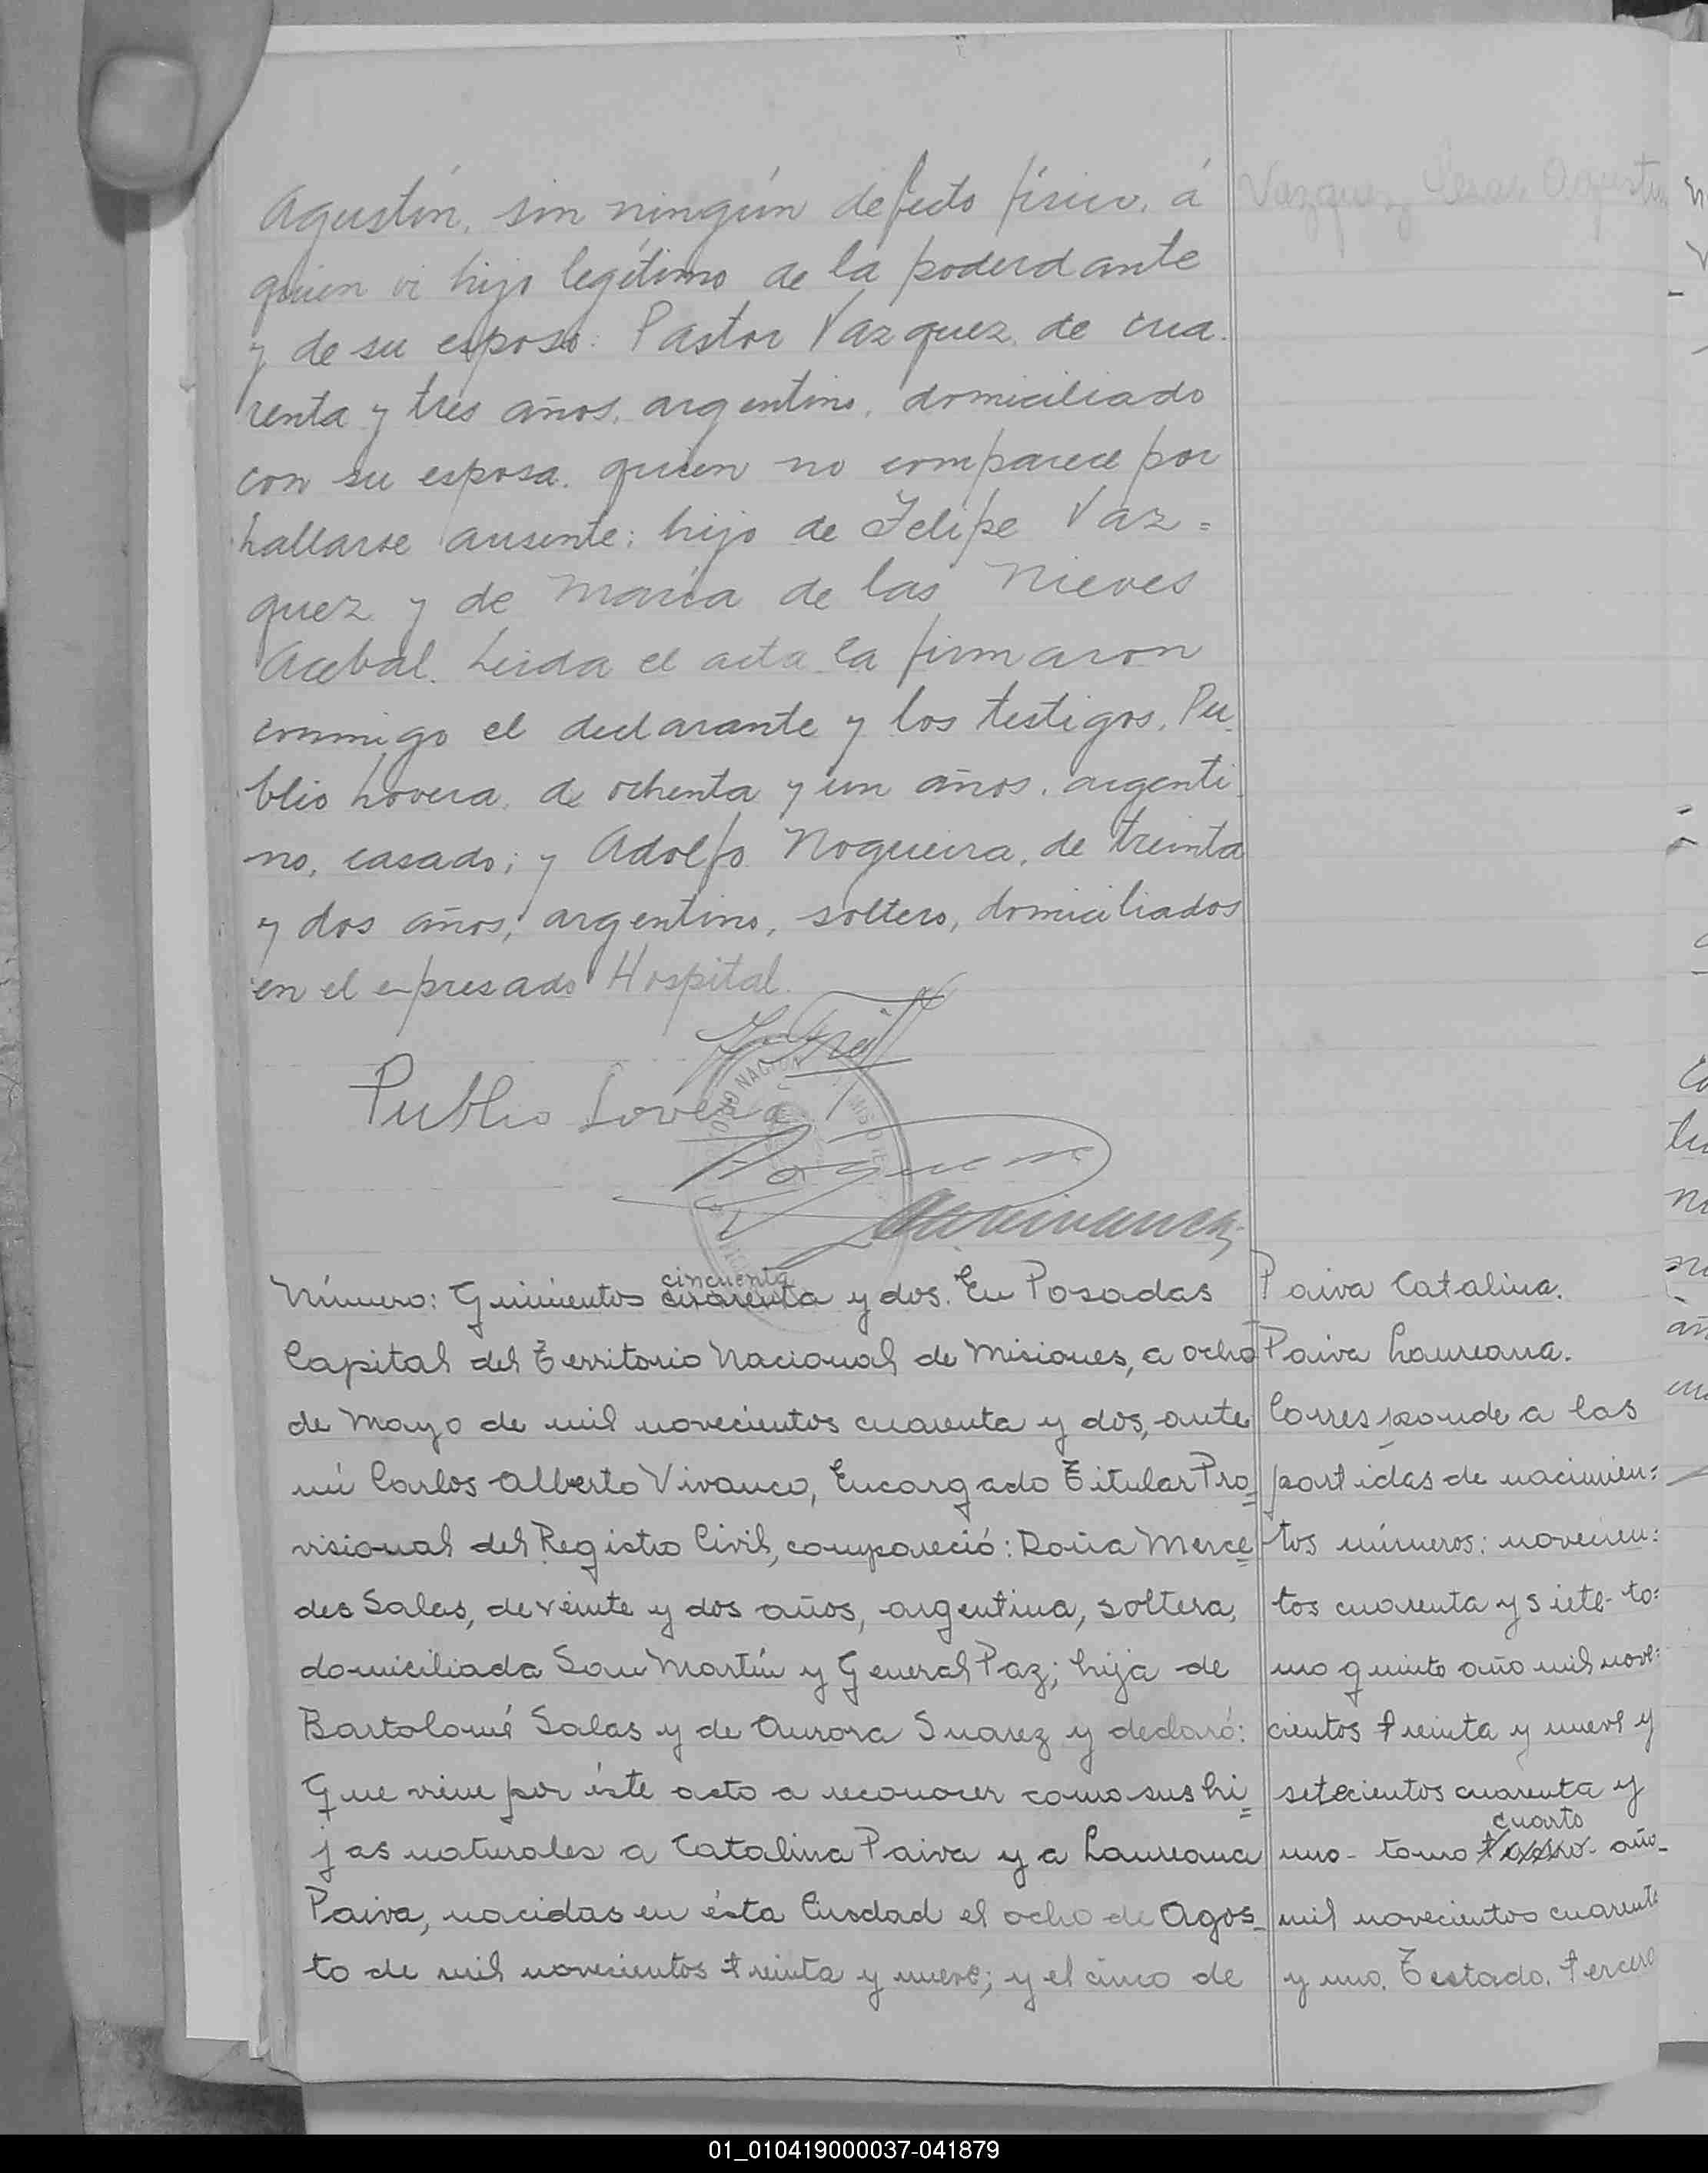 Agustín, sin ningún defecto físico, á
quien vi hijo legítimo de la poderdante
y de su esposo: Pastor Vazquez, de cua-
renta y tres años, argentino, domiciliado
con su esposa, quien no comparece por
hallarse ausente; hijo de Felipe Vaz=
quez y de María de las Nieves
Acebal. Leida el acta la firmaron
conmigo el declarante y los testigos, Pu-
blio Lovera, de ochenta y un años, argenti-
no, casado; y Adolfo Nogueira, de treinta
y dos años, argentino, soltero, domiciliados
en el expresado Hospital.
Vazquez Cesar Agustin
Publio Lovera
Número: Quinientos cincuenta cuarenta y dos. En Posadas
Capital del Territorio Nacional de Misiones, a ocho
de Mayo de mil novecientos cuarenta y dos, ante
mi Carlos Alberto Vivanco, Encargado Titular Pro=
visional del Registro Civil, compareció: Doña Merce=
des Salas, de veinte y dos años, argentina, soltera,
domiciliada San Martín y General Paz; hija de
Bartolomé Salas y de Aurora Suarez y declaró:
Que viene por éste acto a reconocer como sus hi=
jas naturales a Catalina Paiva y a Laureana
Paiva, nacidas en ésta Ciudad el ocho de Agos-
to de mil novecientos treinta y nueve; y el cinco de
Paiva Catalina.
Paiva Laureana.
Corresponde a las
partidas de nacimien=
tos números: novecien=
tos cuarenta y siete- to=
mo quinto año mil nove=
cientos treinta y nueve y
setecientos cuarenta y
cuarto
uno- tomo año-
mil novecientos cuarenta
y uno. Testado. tercero
01_010419000037-041879